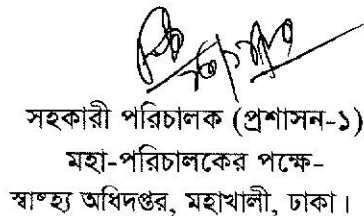 সহকারী পরিচালক (প্রশাসন-১)
মহা-পরিচালকের পক্ষে-
স্বাস্হ্য অধিদপ্তর, মহাখালী, ঢাকা।